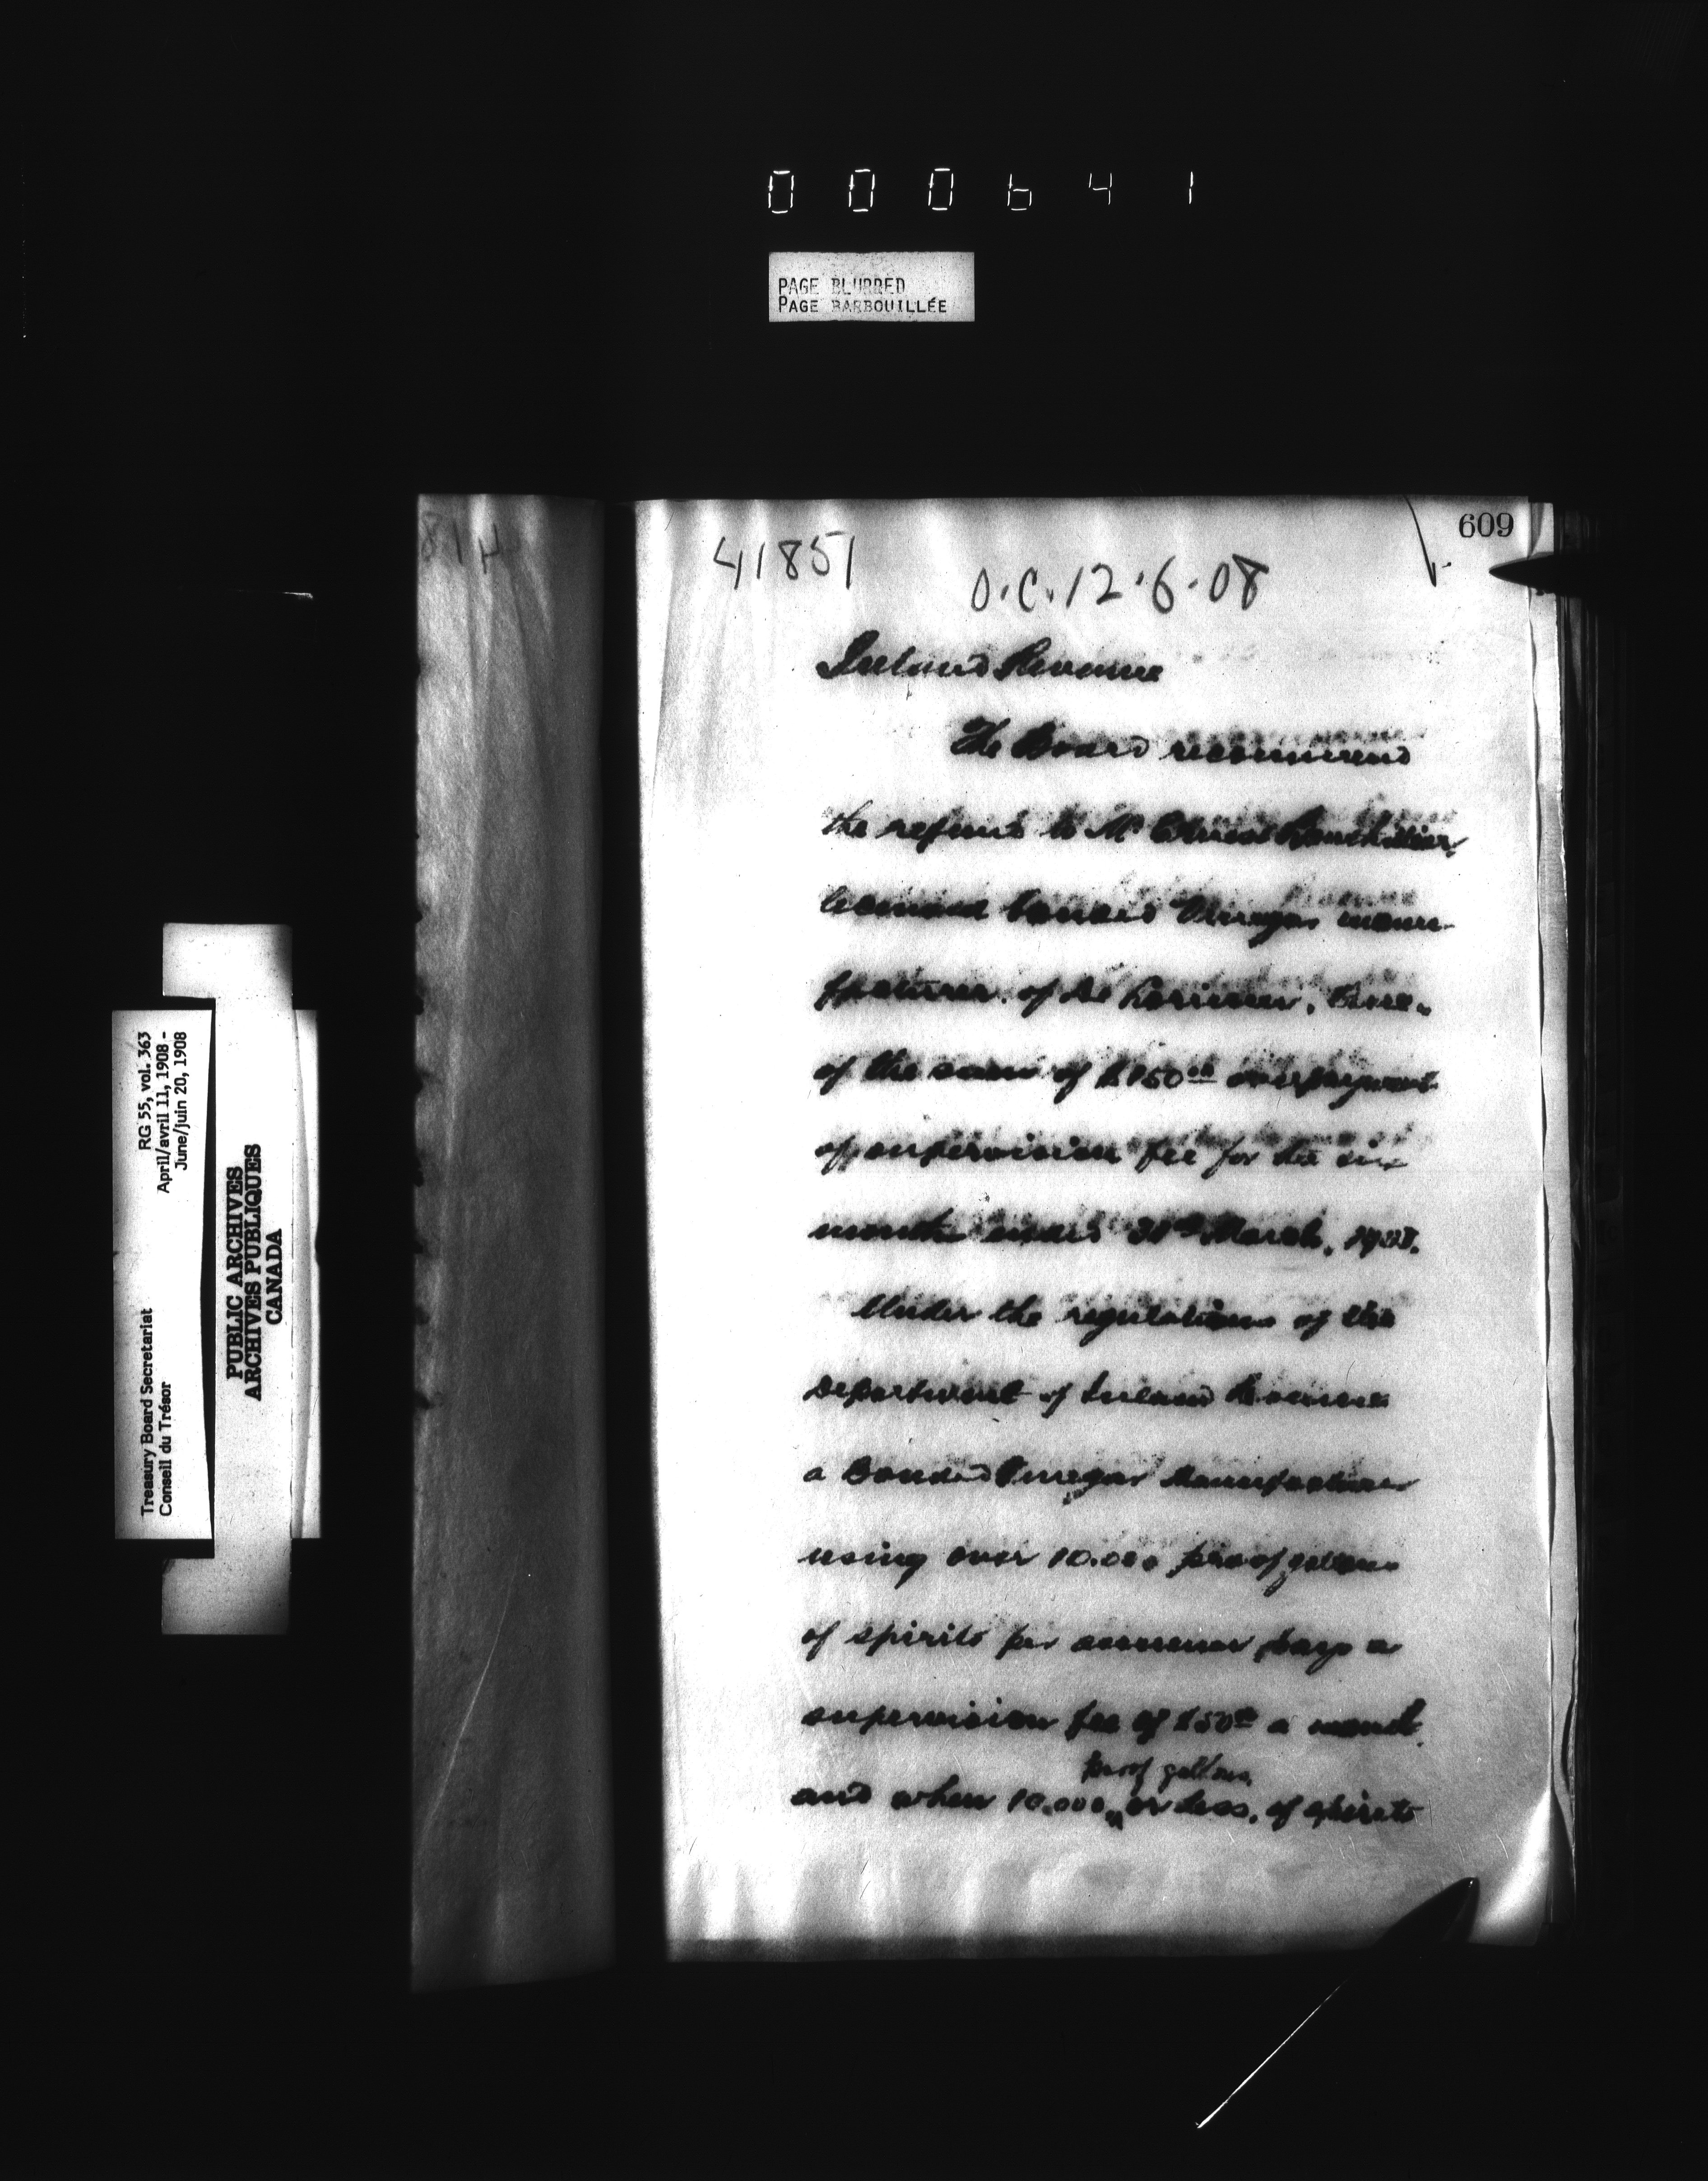 000641
PAGE BLURRED
PAGE BARBOUILLÉE
609
41851
O.C. 12.6.08
Inland Revenue
The Board recommend
the refund to Mr
licensed bonded Vinegar manu-
facturer, of De Lorimier, Que.
of the sum of $150.00 overpayment
of supervision fee for the six
months ended 31st March, 1908.
Under the regulations of the
Department of Inland Revenue
a Bonded Vinegar Manufacturer
using over 10.000 proof gallons
of spirits per annum pays a
supervision fee of $50.00 a month
proof gallons
and when 10.000 or less, of spirits
Treasury Board Secretariat
Conseil du Trésor
RG 55, vol. 363
April/avril 11, 1908 -
June/juin 20, 1908
PUBLIC ARCHIVES
ARCHIVES PUBLIQUES
CANADA